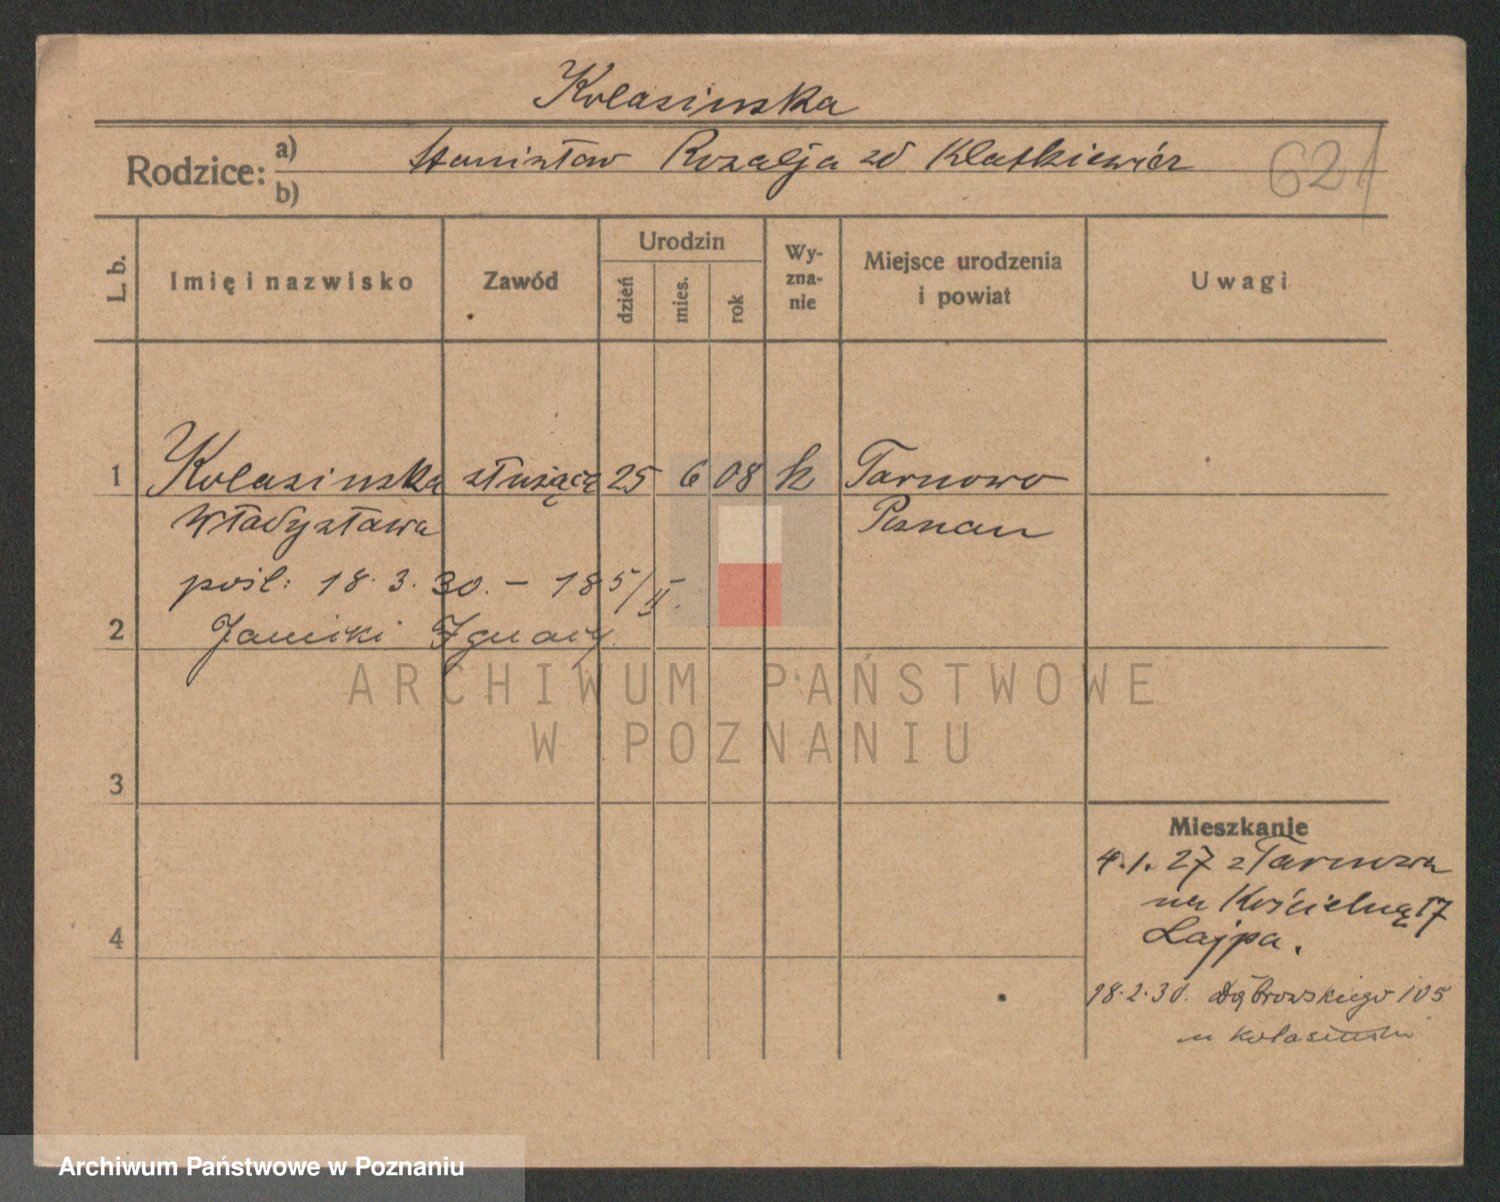 Kolasinska
Rodzice: a) Stanisław Rozalja zd Klatkiewicz
b)
621
L. b.
Imię i nazwisko
Zawód
Urodzin
dzień
mies.
rok
Wy-
zna-
nie
Miejsce urodzenia
i powiat
Uwagi
1 Kolasinska służąca 25 6 08 k Tarnowo
Władysława Poznan
pośl: 18. 3. 30. – 185/II.
2 Janicki Ignacy.
3
4
Mieszkanie
4.1.27 z Tarnowa
na Kościelną 17
Lajpa.
18.2.30. Dąbrowskiego 105
u Kolasinski
ARCHIWUM PAŃSTWOWE
W POZNANIU
Archiwum Państwowe w Poznaniu